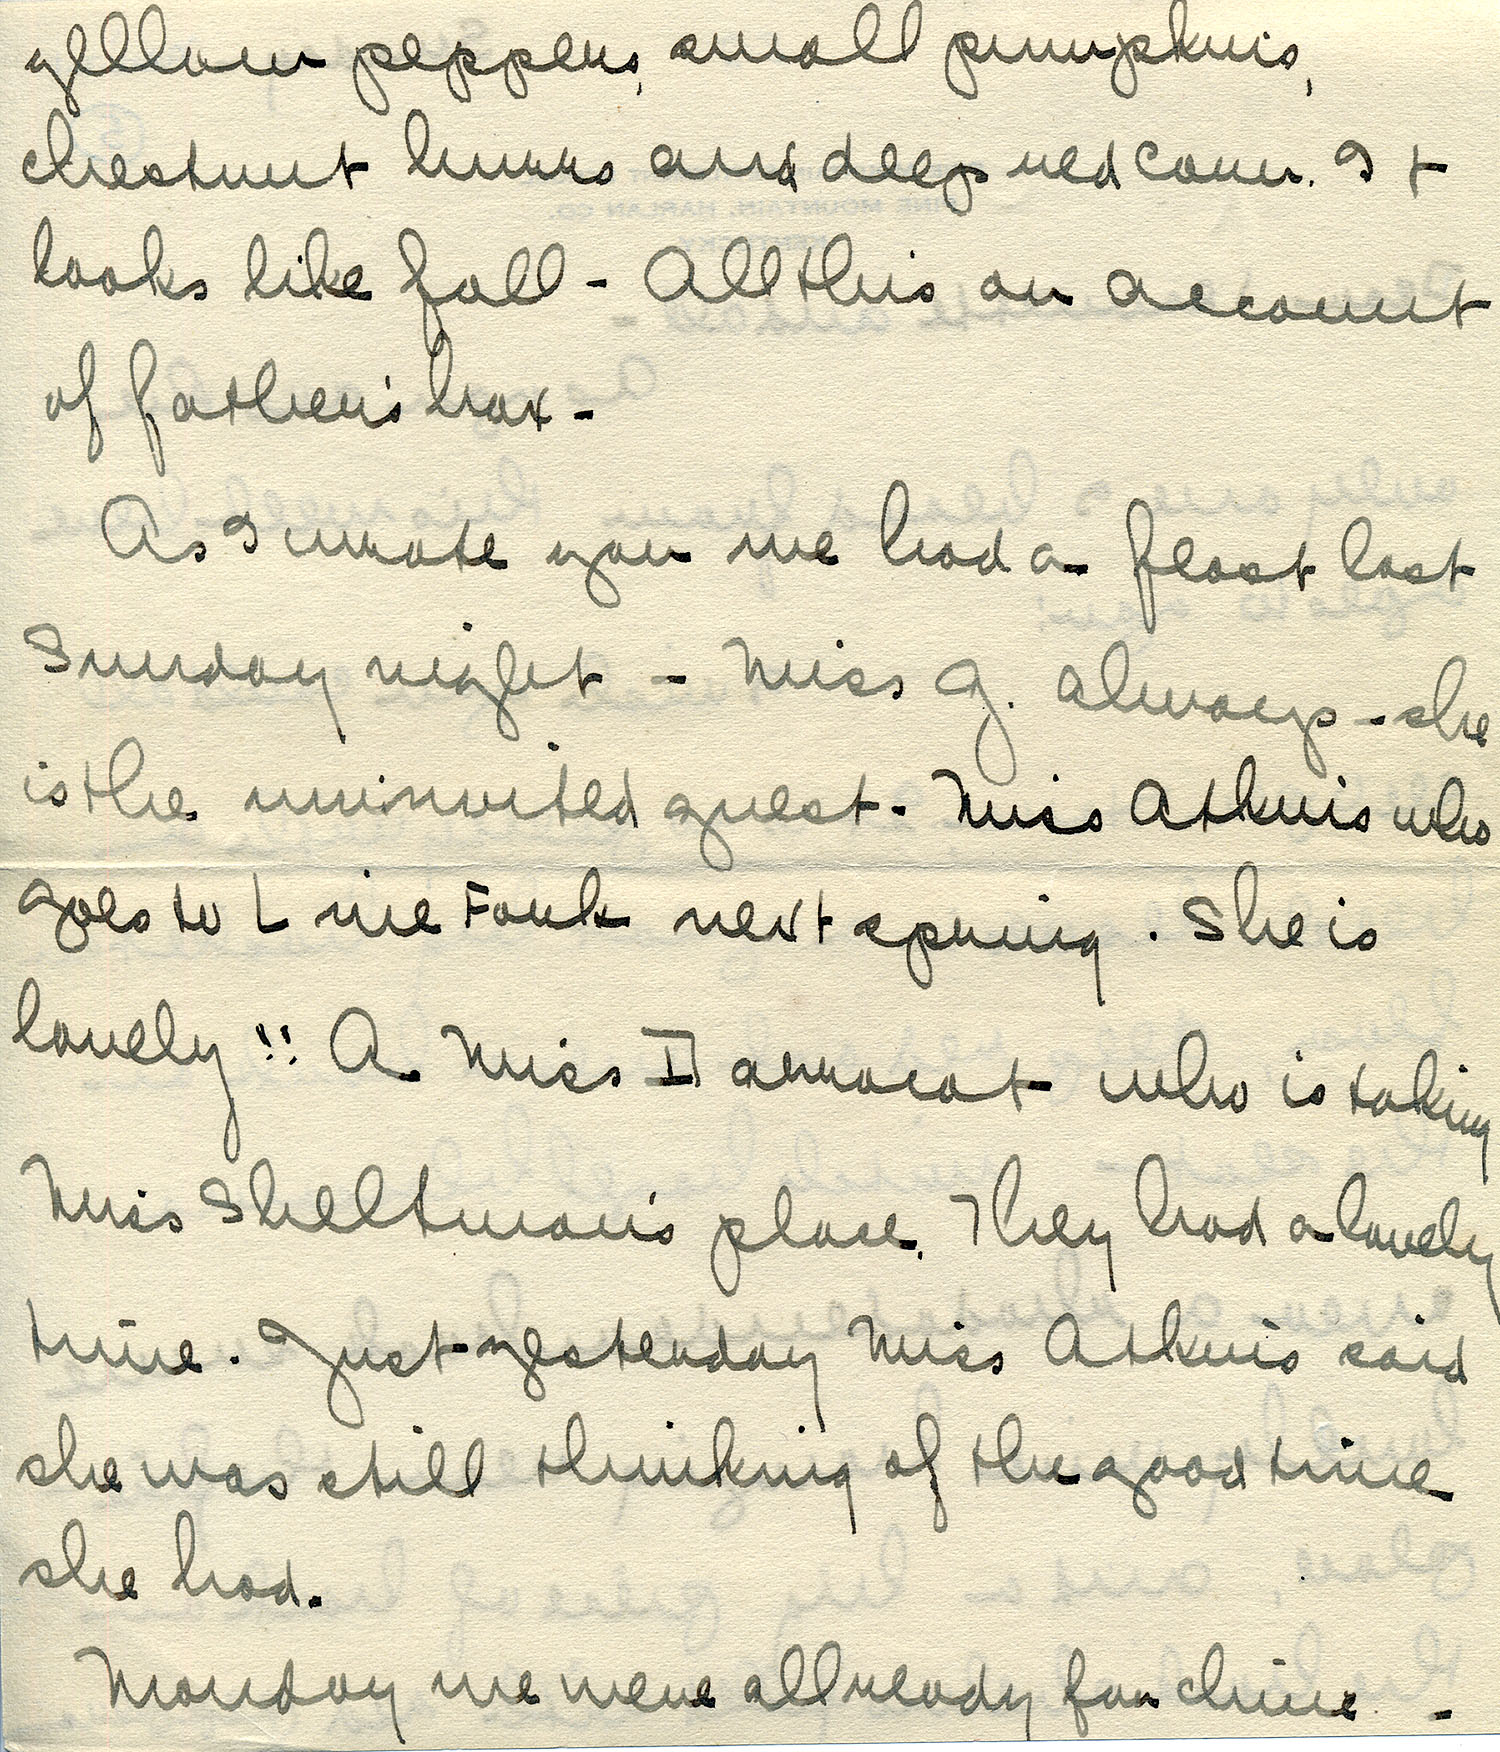 yellow peppers, small pumpkins,
chestnut burrs and deep red corn. It
looks like fall - All this on account
of father's box -
As I wrote you we had a feast last
Sunday night - Miss G. always - she
is the uninvited guest - Miss Atkins who
goes to Line Fork next spring. She is
lovely!! A Miss who is taking
Miss Sheltman's place. They had a lovely
time. Just yesterday Miss Atkins said
she was still thinking of the good time
she had.
Monday we were all ready for -
PINE MOUNTAIN, HARLAN CO.
KENTUCKY